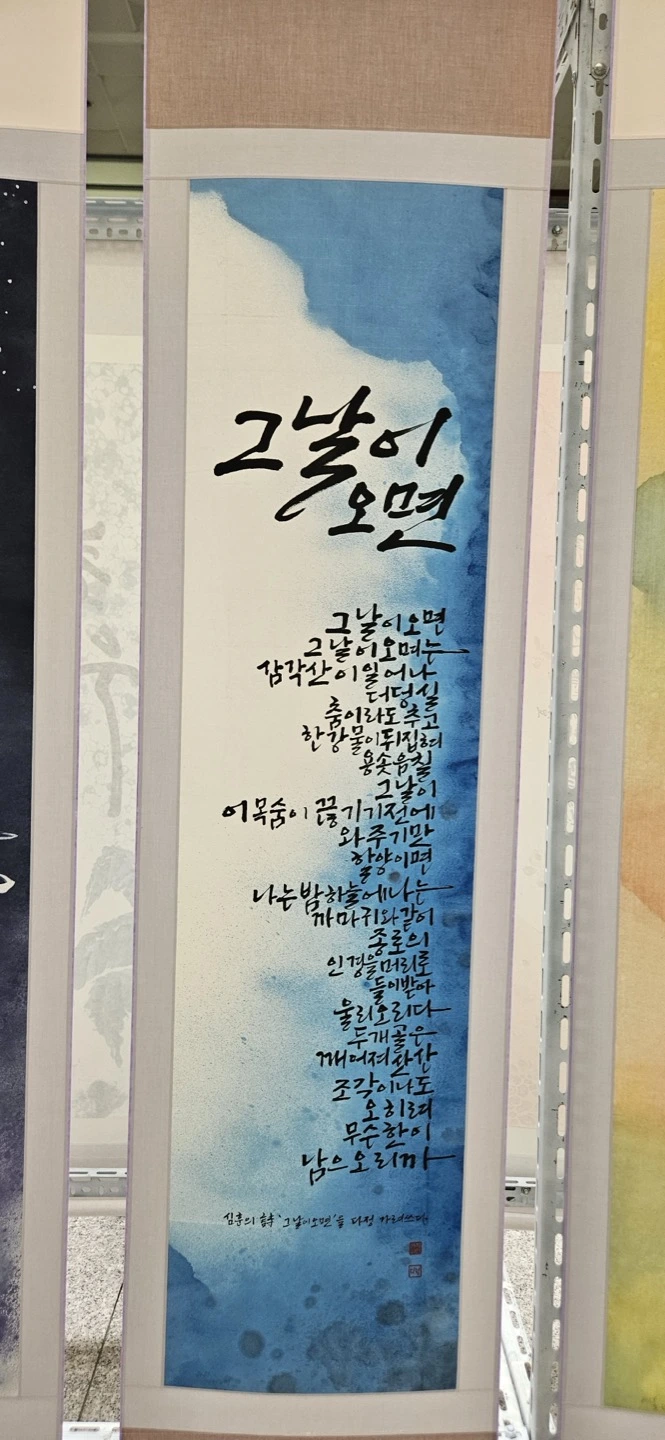 그날이
오면
그날이오면
그날이오며는
삼각산이일어나
더덩실
춤이라도추고
한강물이뒤집혀
용솟음칠
그날이
이목숨이끊기기전에
와주기만
할양이면
나는밤하늘에나는
까마귀와같이
종로의
인경을머리로
들이받아
울리오리다
두개골은
깨어져산산
조각이나도
오히려
무수한이
남으오리까
심훈의 詩 '그날이오면'을 다정 가려쓰다